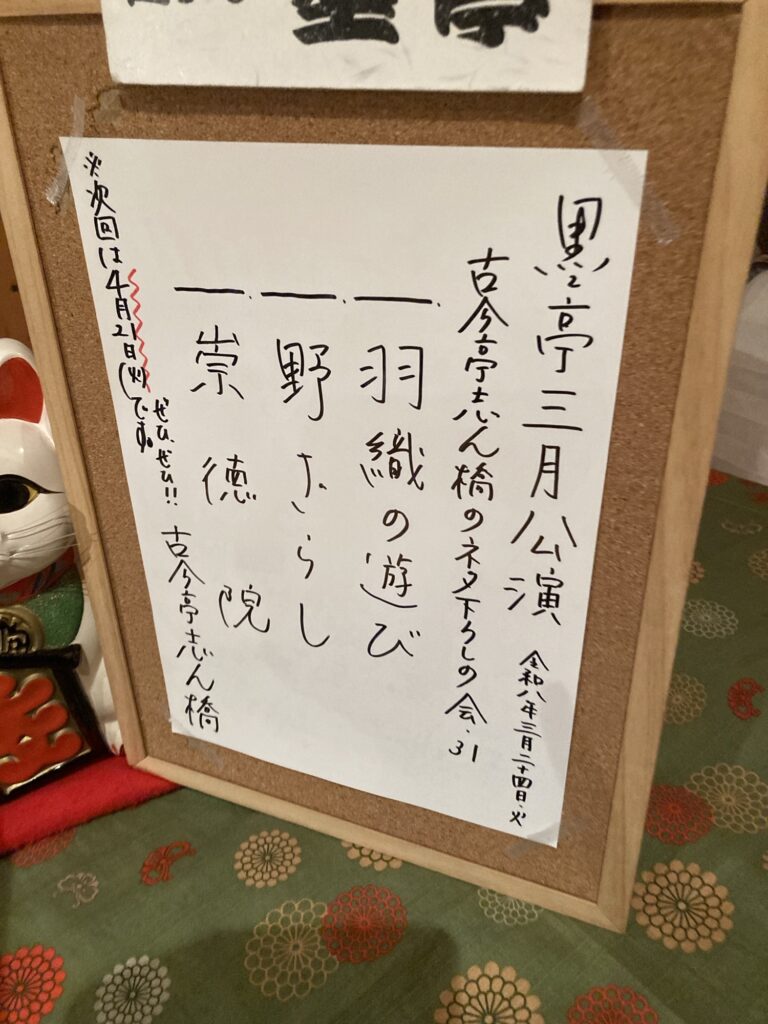 黒亭三月公演 令和八年三月二十四日・火
古今亭志ん橋のネタ下ろしの会・31
一. 羽織の遊び
一. 野ざらし
一. 崇徳院
古今亭志ん橋
※次回は4月21日(火)です。
ぜひ、ぜひ!!